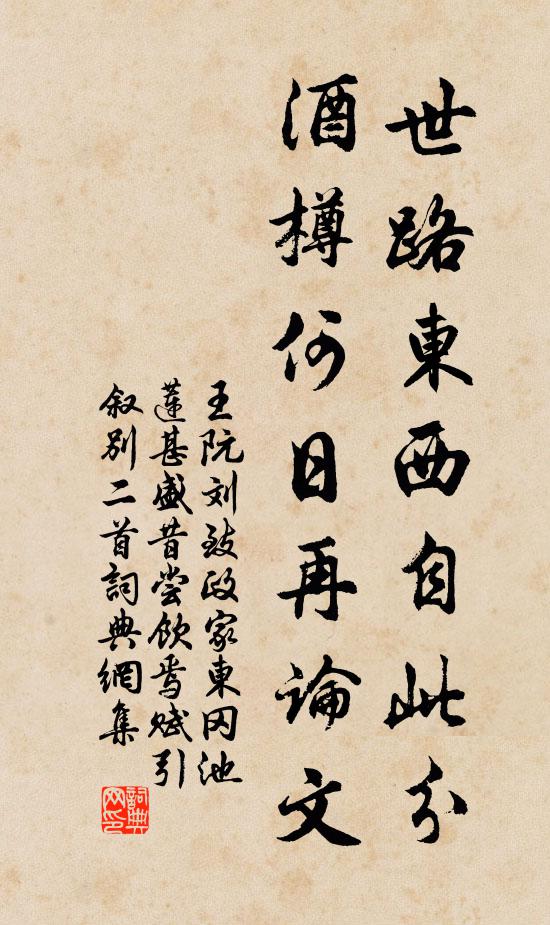 世路東西自此分
酒樽何日再論文
王阮刘致政家東囝池
蓮甚盛昔尝飲焉赋引
叙别二首詞典網集
詞典
网印